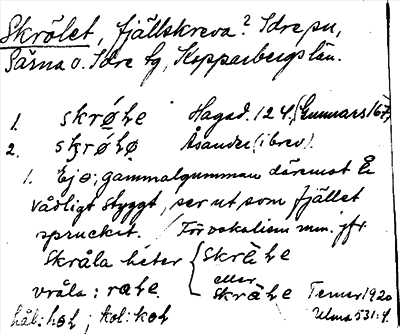 Skrölet, fjällskreva? Idre sn,
Särna o. Idre tg, Kopparbergs län.
1. skrøle Hagad. 124, (Gunnars 167)
2. skrølø Åsander (i brev).
1. Ejə; gammalgumman däremot är
vådligt styggt, ser ut som fjället
spruckit. / För vokalism m.m. jfr.
Skråla heter { skråle
eller
vråla: rale. skråle Terner 1920
hål: hol; kol: kol Ulma 531:4.